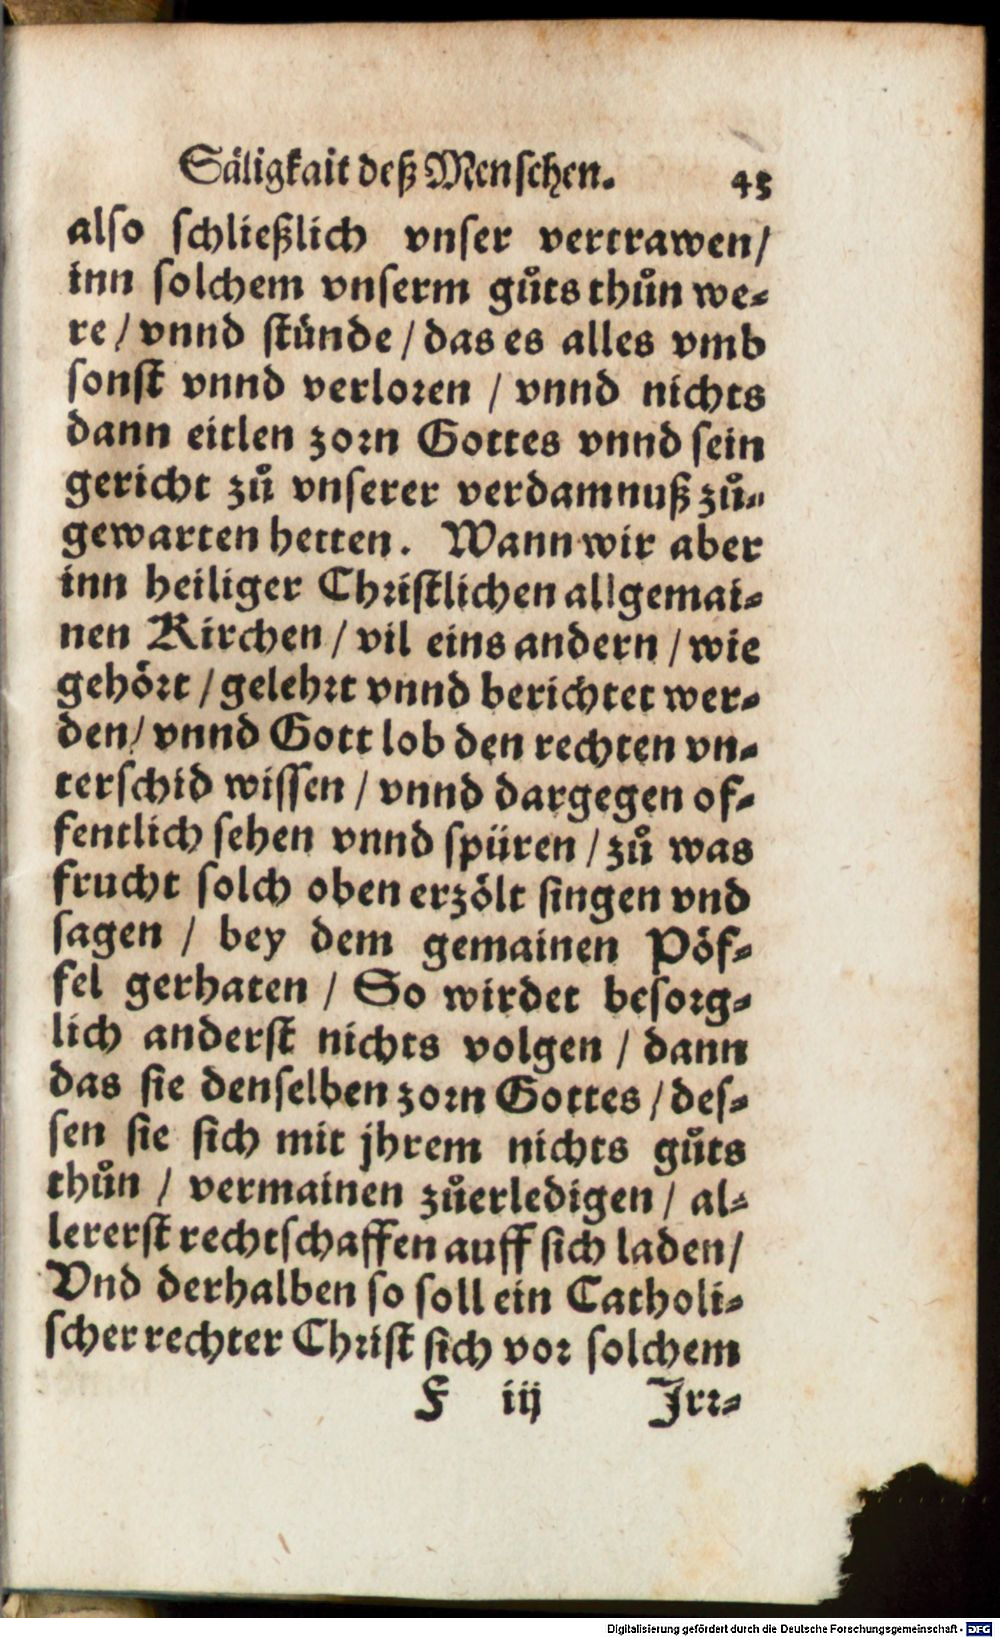 Säligkait deß Menschen. 45
also schließlich vnser vertrawen/
inn solchem vnserm gůts thůn we-
re / vnnd stünde / das es alles vmb
sonst vnnd verloren / vnnd nichts
dann eitlen zorn Gottes vnnd sein
gericht zů vnserer verdamnuß zů-
gewarten hetten. Wann wir aber
inn heiliger Christlichen allgemai-
nen Kirchen / vil eins andern / wie
gehört / gelehrt vnnd berichtet wer-
den/ vnnd Gott lob den rechten vn-
terschid wissen / vnnd dargegen of-
fentlich sehen vnnd spüren / zů was
frucht solch oben erzölt singen vnd
sagen / bey dem gemainen Pöf-
fel gerhaten / So wirdet besorg-
lich anderst nichts volgen / dann
das sie denselben zorn Gottes / des-
sen sie sich mit jhrem nichts gůts
thůn / vermainen zůerledigen / al-
lererst rechtschaffen auff sich laden/
Vnd derhalben so soll ein Catholi-
scher rechter Christ sich vor solchem
F iij Irr-
Digitalisierung gefördert durch die Deutsche Forschungsgemeinschaft - DFG